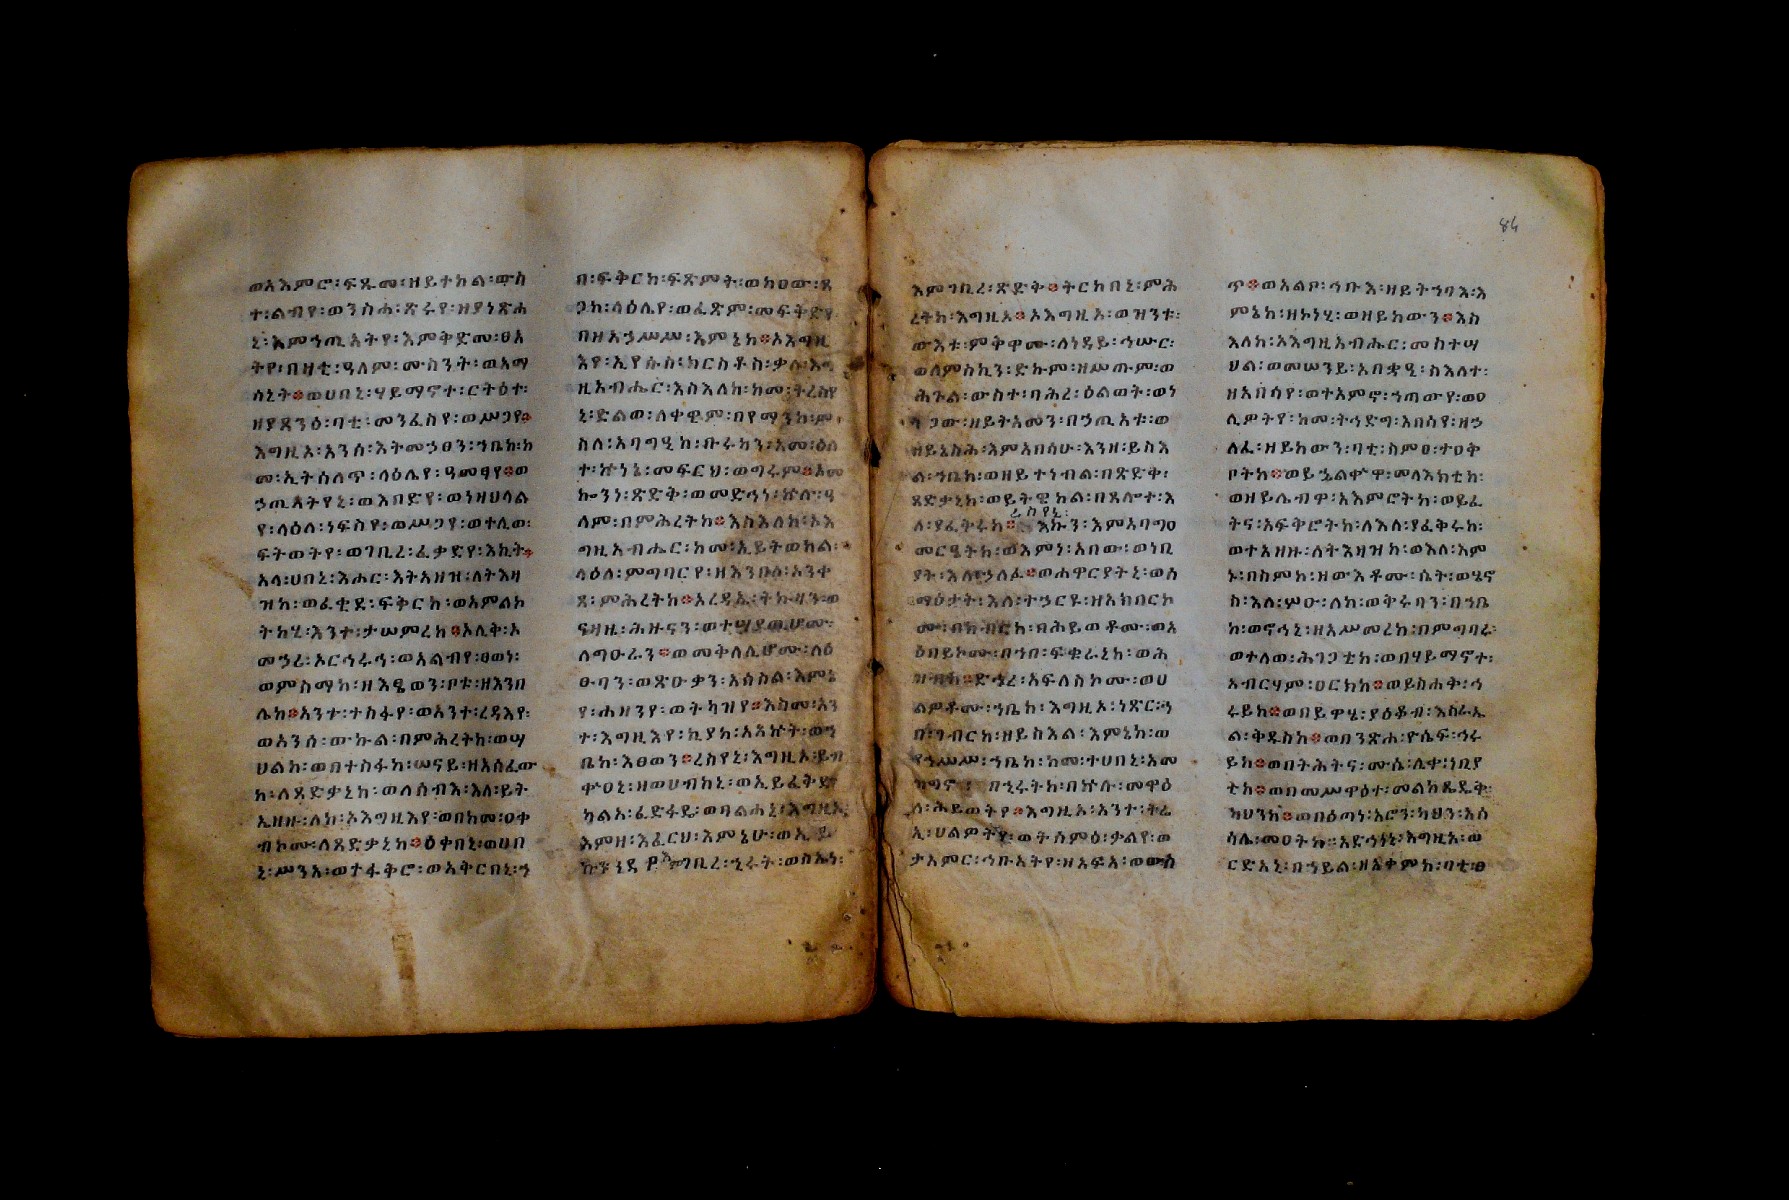 ወአእምሮ፡ፍጹመ፡ዘይተከል፡ውስ
ተ፡ልብየ፡ወንስሐ፡ጽሩየ፡ዘያነጽሐ
ኒ፡እምኀጢአትየ፡እምቅድመ፡ፀአ
ትየ፡በዘቲ፡ዓለም፡ሙስንት፡ወአማ
ሳኒት፨ወሀበኒ፡ሃይማኖተ፡ርትዕተ፡
ዘያጸንዕ፡ባቲ፡መንፈስየ፡ወሥጋየ፨
እግዚአ፡አንሰ፡እትመኃፀን፡ኀቤከ፡ከ
መ፡ኢትሰለጥ፡ላዕሌየ፡ዓመፃየ፨ወ
ኃጢአትየኒ፡ወእበድየ፡ወነዘህላል
የ፡ላዕለ፡ነፍስየ፡ወሥጋየ፡ወተሊወ፡
ፍትወትየ፡ወገቢረ፡ፈቃድየ፡እኪት፨
አላ፡ሀበኒ፡እሖር፡እትአዘዝ፡ለትእዛ
ዝከ፡ወፈቂደ፡ፍቅርከ፡ወአምልኮ
ትከሂ፡እንተ፡ታሠምረከ፨አሊቅ፡አ
መኃሪ፡ኦርኅሩኅ፡ወአልብየ፡ፀወነ፡
ወምስማከ፡ዘእዔወን፡ቦቱ፡ዘእንበ
ሌከ፨አንተ፡ተስፋየ፡ወአንተ፡ረዳእየ፡
ወአንሰ፡ውኩል፡በምሕረትከ፡ወሣ
ህልከ፡ወበተስፋከ፡ሠናይ፡ዘአሰፈው
ከ፡ለጻድቃኒከ፡ወለሰብእ፡እለ፡ይት
ኤዘዙ፡ለከ፡ኦእግዚእየ፡ወበከመ፡ዐቀ
ብኮሙ፡ለጻድቃኒከ፨ዕቀበኒ፡ወሀበ
ኒ፡ሥንአ፡ወተፋቅሮ፡ወአቅርበኒ፡ኃ
በ፡ፍቅርከ፡ፍጽምት፡ወክዐው፡ጸ
ጋከ፡ላዕሌየ፡ወፈጽም፡መፍትድየ
በዘአኃሥሥ፡እምኔከ፨ኦእግዚ
እየ፡ኢየሱስ፡ክርስቶስ፡ቃሉ፡
ዚአብሔር፡እስእለከ፡ከመ፡ትረስየ
ኒ፡ድልወ፡ለቀዊም፡በየማንከ፡ም
ስለ፡አባግዒከ፡ቡሩካን፡አመ፡ዕለ
ተ፡ኵነኔ፡መፍርህ፡ወግሩም፨
ኰንነ፡ጽድቅ፡ወመድኅነ፡ኵሉ፡ዓ
ለም፡በምሕረትከ፨እስእለከ፡ኦእ
ግዚአብሔር፡ከመ፡ኢይትወከል፡
ላዕለ፡ምግባርየ፡ዘእንበለ፡አንቀ
ጸ፡ምሕረትከ፨
ለግዑራን፨ወመቅለሊሆሙ፡ለዕ
ፁባን፡ወጽዑቃን፡አሰስል፡እምኔ
የ፡ሐዘንየ፡ወትካዝየ፨እስመ፡አን
ተ፡እግዚእየ፡ኪያከ፡አአኵት፡ወኀ
ቤከ፡እፀወን፨ረስየኒ፡እግዚአ፡ይብ
ቍዐኒ፡ዘወሀብከኒ፡ወኢይፈትድ
ካልአ፡ፈድፋደ፡ወባልሐኒ፡እግዚአ
እምዘ፡እፈርህ፡እምኔሁ፡ወኢይ
ገቢረ፡ኂሩት፡ወስእነ፡
እምገቢረ፡ጽድቅ፨ትርከበኒ፡ምሕ
ረትከ፡እግዚአ፨ኦእግዚአ፡ወዝንቱ፡
ውእቱ፡ምቅዋሙ፡ለነዳይ፡ኅሡር፡
ወለምስኪን፡ድኩም፡ዘሥጡም፡ወ
ሕጉል፡ውስተ፡ባሕረ፡ዕልወት፡ወነ
ዘይትአመን፡በኃጢአቱ፡ወ
ዘይኔስሕ፡እምአበሳሁ፡እንዘ፡ይስእ
ል፡ኀቤከ፡ወዘይተነብል፡በጽድቅ፡
ጻድቃኒከ፡ወይትዌከል፡በጸሎተ፡እ
ረስየኒ፡
ለ፡ያፈቅሩከ፨እኩን፡እምአባግዐ
መርዔትከ፡ወእምነ፡አበው፡ወነቢ
ያት፡እለ፡ኃለፉ፨ወሐዋርያትኒ፡ወሰ
ማዕታት፡እለ፡ተኃርዩ፡
ዕበይኮሙ፡በኀበ፡ፍቁራኒከ፡ወሕ
ድኅረ፡አፍለስኮሙ፡ወሀ
ልዎቶሙ፡ኀቤከ፡እግዚኦ፡ነጽር፡ኀ
በ፡ገብርከ፡ዘይስእል፡እምኔከ፡ወ
የኃሥሥ፡ኀቤከ፡ከመ፡ተሀበኒ፡አመ
በኂሩትከ፡በኵሉ፡መዋዕ
ለ፡ሕይወትየ፨እግዚአ፡አንተ፡ትሬ
ኢ፡ሀልዎትየ፡ወትሰምዕ፡ቃልየ፡ወ
ታአምር፡ኅቡአትየ፡ዘአፍአ፡ወውስ
ጥ፨ወአልቦ፡ኅቡእ፡ዘይትኀባእ፡እ
ምኔከ፡ዘኮነሂ፡ወዘይከውን፨እስ
እለከ፡ኦእግዚአብሔር፡መስተሣ
ህል፡ወመሠንይ፡አበቋዒ፡ስእለተ፡
ዘአበሳየ፡ወተአምኖ፡ኀጣውየ፡ወዐ
ሊዎትየ፡ከመ፡ትኅድግ፡አበስየ፡ዘኃ
ለፈ፡ዘይከውን፡ባቲ፡ስምዐ፡ተዐቅ
ቦትከ፨ወይኄልቍዋ፡መላእክቲከ፡
ወዘይሌብዋ፡አእምሮትከ፡ወይፈ
ትና፡አፍቅሮትከ፡ለእለ፡ያፈቅሩከ፡
ወተአዘዙ፡ለትእዛዝከ፡ወእለ፡አም
ኑ፡በስምከ፡ዘውእቶሙ፡ሴት፡ወሄኖ
ክ፡እለ፡ሦዑ፡ለከ፡ወቅሩባን፡በኀቤ
ከ፡ወኖኅኒ፡ዘአሥመረከ፡በምግባሩ፡
ወተለወ፡ሕገጋቲከ፡ወበሃይማኖተ፡
አብርሃም፡ዐርክከ፨ወይስሐቅ፡ኅ
ሩይከ፨ወበይዋሄ፡ያዕቆብ፡እስራኤ
ል፡ቅዱስከ፨ወበንጽሐ፡ዮሴፍ፡ኅሩ
ይከ፨ወበትሕትና፡ሙሴ፡ሊቀ፡ነቢያ
ቲከ፨ወበመሥዋዕተ፡መልከጼዴቅ፡
ካህንከ፨ወበዕጣነ፡አሮን፡ካህን፡እሰ
ሳሌ፡መዐትከ፡፡አድኅነኒ፡እግዚአ፡ወ
ርድአኒ፡በኃይል፡ዘአቀምከ፡ባቲ፡ፀ